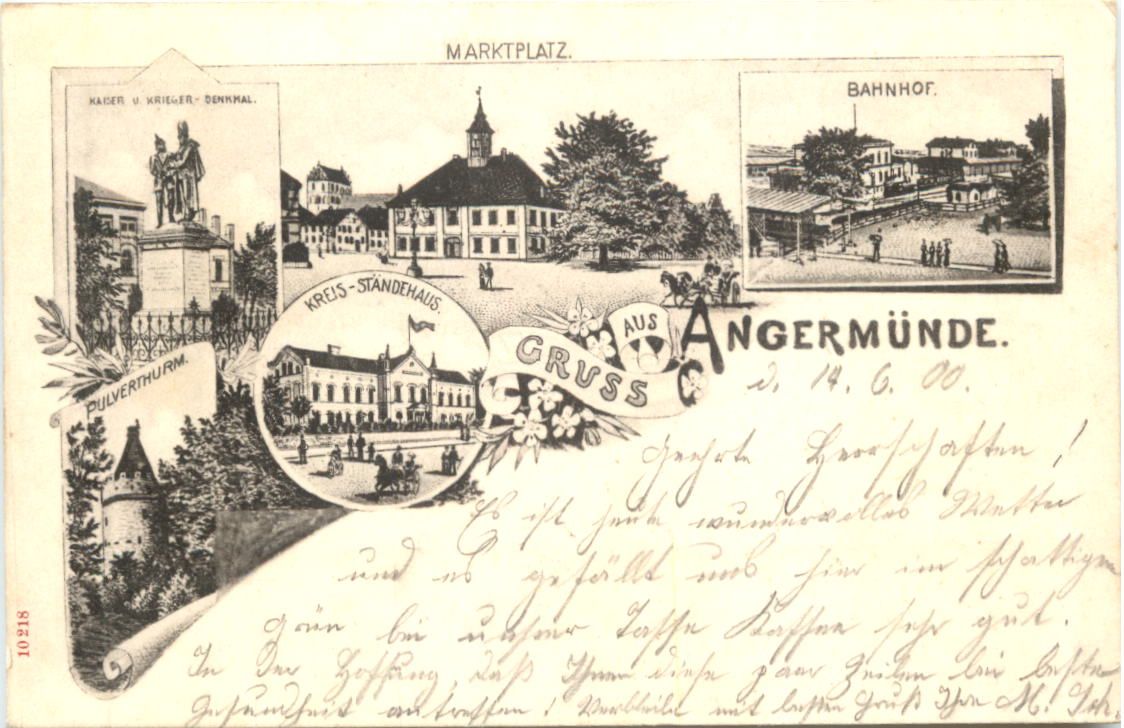 MARKTPLATZ.
KAISER U. KRIEGER-DENKMAL.
BAHNHOF.
KREIS-STÄNDEHAUS.
PULVERTHURM.
GRUSS AUS ANGERMÜNDE.
d. 14. 6. 00.
Geehrte Herrschaften!
Es ist heute wundervolles Wetter
und es gefällt uns hier im schattigen
Grün bei unsrer Tasse Kaffee sehr gut.
In der Hoffnung, daß Ihnen diese paar Zeilen bei bester
Gesundheit antreffen! Verbleibe mit besten Gruß Ihre M. Sch.
10 218